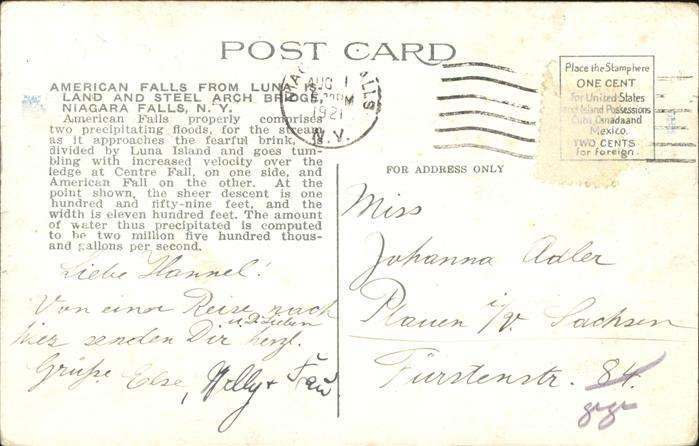 POST CARD
AMERICAN FALLS FROM LUNA IS-
LAND AND STEEL ARCH BRIDGE,
NIAGARA FALLS, N. Y.
American Falls properly comprises
two precipitating floods, for the stream
as it approaches the fearful brink, is
divided by Luna Island and goes tum-
bling with increased velocity over the
ledge at Centre Fall, on one side, and
American Fall on the other. At the
point shown, the sheer descent is one
hundred and fifty-nine feet, and the
width is eleven hundred feet. The amount
of water thus precipitated is computed
to be two million five hundred thous-
and gallons per second.
AUG 1
1921
N.Y.
Place the Stamp here
ONE CENT
for United States
and Island Possessions
Cuba, Canada and
Mexico.
TWO CENTS
for Foreign.
FOR ADDRESS ONLY
Liebe Hannel!
Von einer Reise nach
hier senden Dir u. D. Lieben herzl.
Grüße Else, Nelly +
Miss
Johanna Adler
Plauen i/V. Sachsen
Fürstenstr. 84.